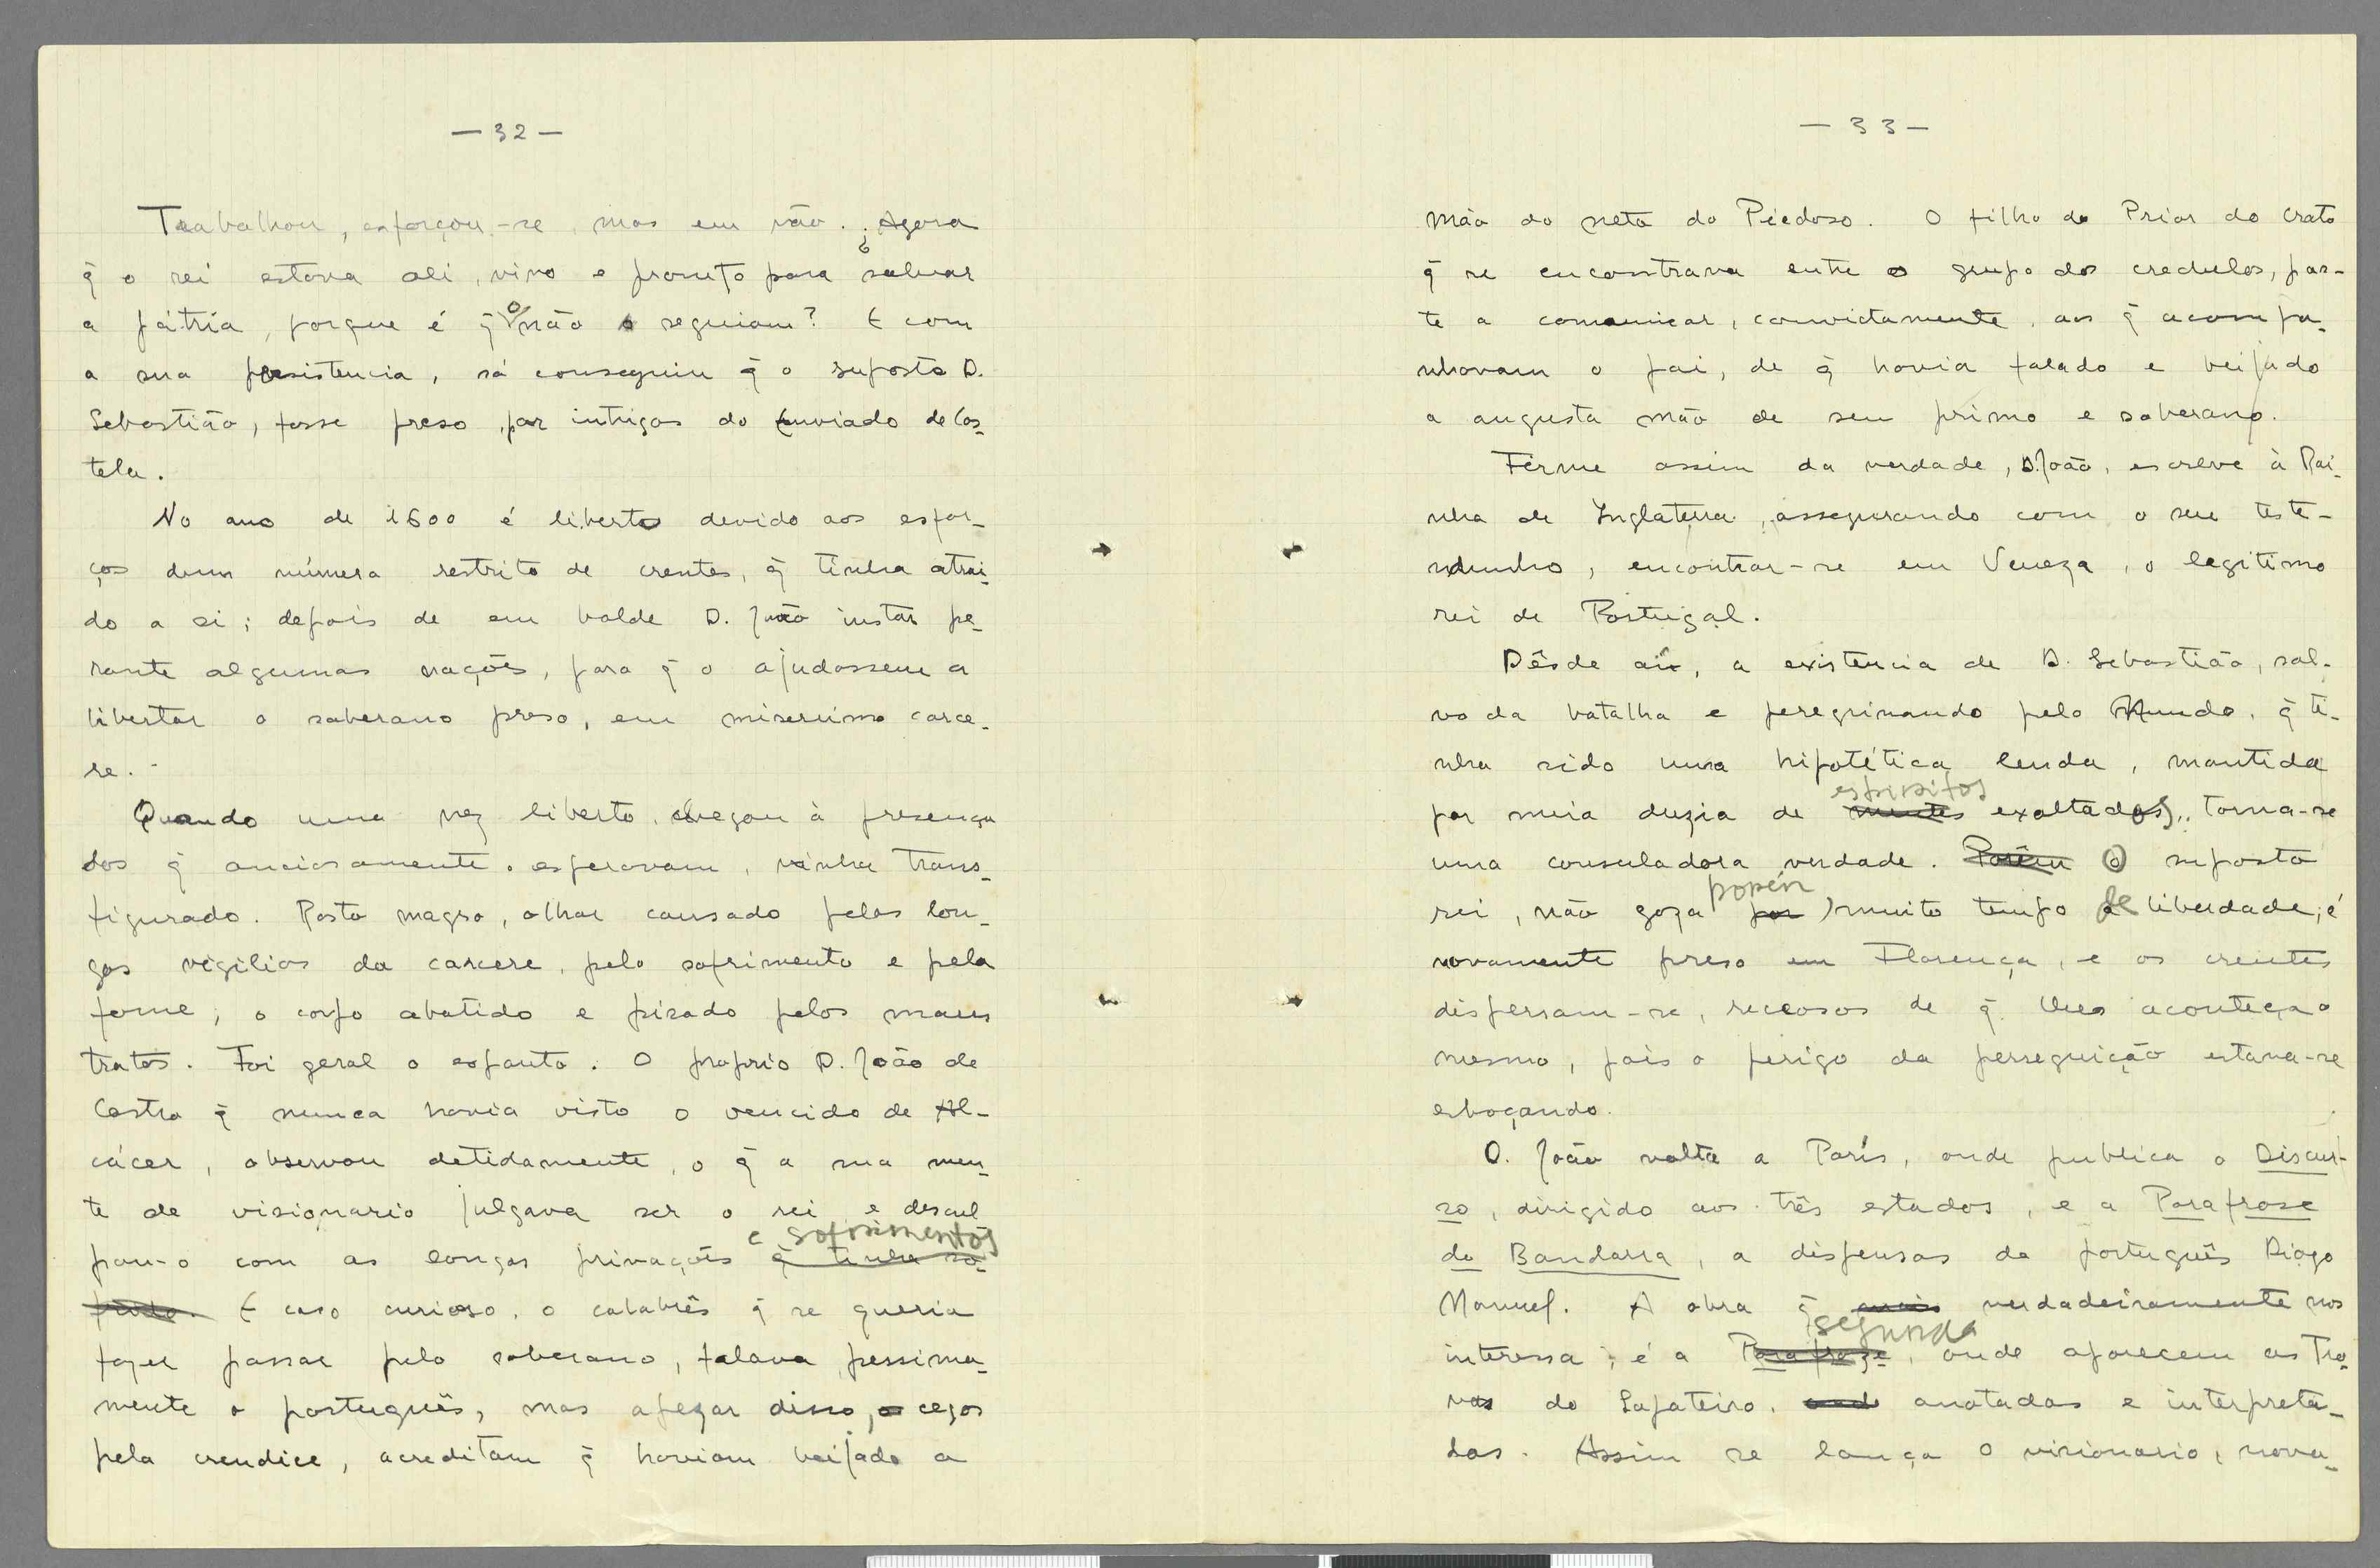 — 32 —
Trabalhou, esforçou-se, mas em vão. ¿ Agora
q̃ o rei estava ali, vivo e pronto para salvar
a pátria, porque é q̃ o não seguiam? E com
a sua persistencia, só conseguiu q̃ o suposto D.
Sebastião, fosse preso por intrigas do Enviado de Cas-
tela.
No ano de 1600 é liberto devido aos esfor-
ços dum número restrito de crentes, q̃ tinha atrai-
do a si; depois de em balde D. João instar pe-
rante algumas nações, para q̃ o ajudassem a
libertar o soberano preso, em miserrimo carce-
re.
Quando uma vez liberto, chegou à presença
dos q̃ anciosamente o esperavam, vinha trans-
figurado. Rosto magro, olhar cansado pelas lon-
gas vigilias da carcere, pelo sofrimento e pela
fome; o corpo abatido e pizado pelos maus
tratos. Foi geral o espanto. O proprio D. João de
Castro q̃ nunca havia visto o vencido de Al-
cácer, observou detidamente, o q̃ a sua men-
te de visionario julgava ser o rei, e descul
pou-o com as longas privações e sofrimentos q̃ tinha so-
frido. E caso curioso, o calabrês q̃ se queria
fazer passar pelo soberano, falava pessima-
mente o português, mas apezar disso, cegos
pela crendice, acreditam q̃ haviam beijado a
— 33 —
mão do neto do Piedoso. O filho do Prior do Crato
q̃ se encontrava entre o grupo dos credulos, par-
te a comunicar, convictamente, aos q̃ acompa-
nhavam o pai, de q̃ havia falado e beijado
a augusta mão de seu primo e soberano.
Firme assim da verdade, D. João, escreve à Rai-
nha de Inglaterra, assegurando com o seu teste-
munho, encontrar-se em Veneza, o legitimo
rei de Portugal.
Dêsde aí, a existencia de D. Sebastião, sal-
vo da batalha e peregrinando pelo Mundo, q̃ ti-
nha sido uma hipotética lenda, mantida
por meia duzia de mentes espiritos exaltados, torna-se
uma consuladora verdade. Porêm O suposto
rei, não goza porém por muito tempo de liberdade; é
novamente preso em Florença, e os crentes
dispersam-se, receosos de q̃ lhes aconteça o
mesmo, pois o perigo da perseguição estava-se
esboçando.
D. João volta a París, onde publica o Discur-
so, dirigido aos três estados, e a Parafrase
do Bandarra, a dispensas do português Diogo
Manuel. A obra q̃ mais verdadeiramente nos
interessa, é a Parafraze segunda, onde aparecem as Tro-
vas do Sapateiro, anotadas e interpreta-
das. Assim se lança o visionario, nova-